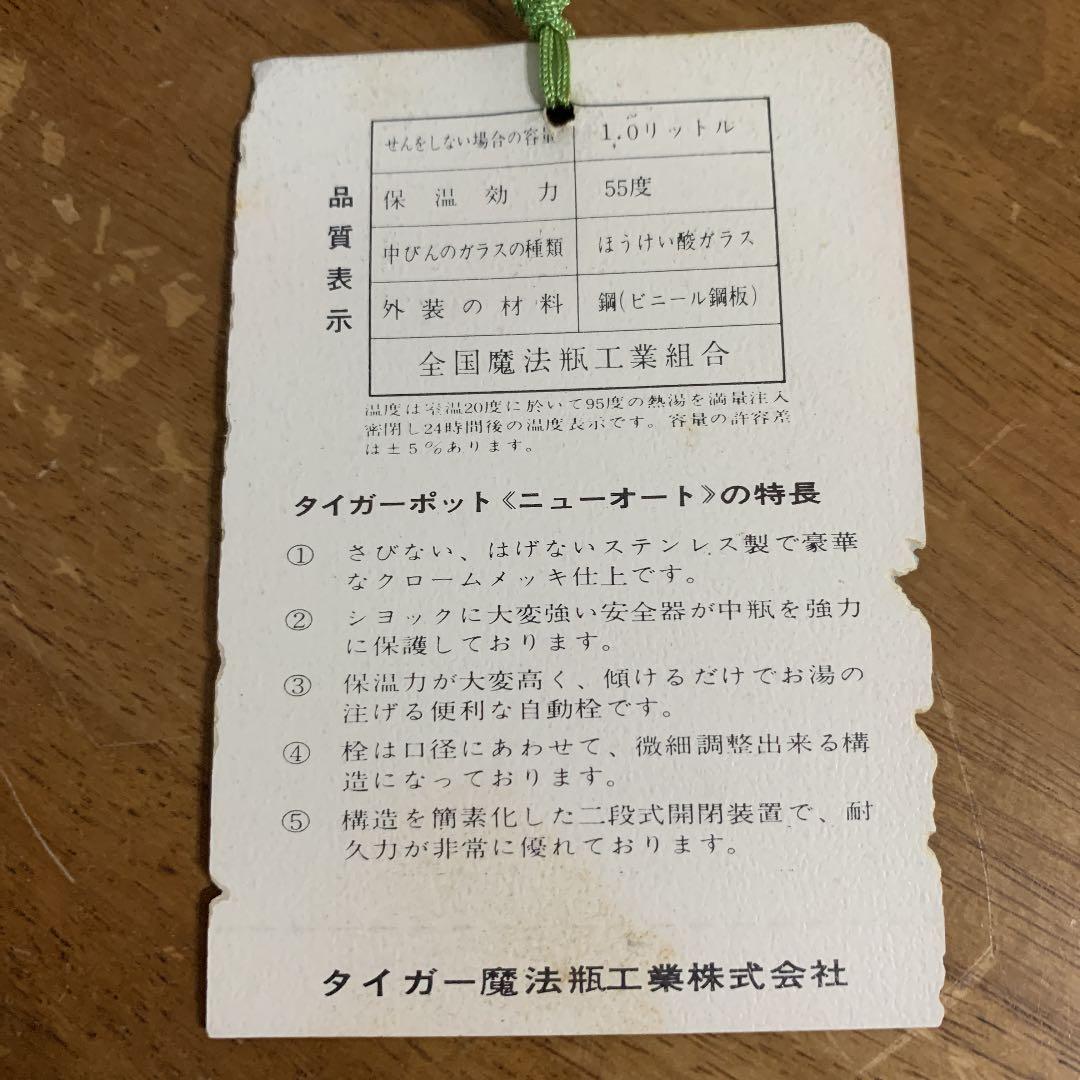 品質表示
せんをしない場合の容量 1.0リットル
保温効力 55度
中びんのガラスの種類 ほうけい酸ガラス
外装の材料 鋼(ビニール鋼板)
全国魔法瓶工業組合
温度は室温20度に於いて95度の熱湯を満量注入
密閉し24時間後の温度表示です。容量の許容差
は±5%あります。
タイガーポット《ニューオート》の特長
① さびない、はげないステンレス製で豪華
なクロームメッキ仕上です。
② シヨックに大変強い安全器が中瓶を強力
に保護しております。
③ 保温力が大変高く、傾けるだけでお湯の
注げる便利な自動栓です。
④ 栓は口径にあわせて、微細調整出来る構
造になっております。
⑤ 構造を簡素化した二段式開閉装置で、耐
久力が非常に優れております。
タイガー魔法瓶工業株式会社